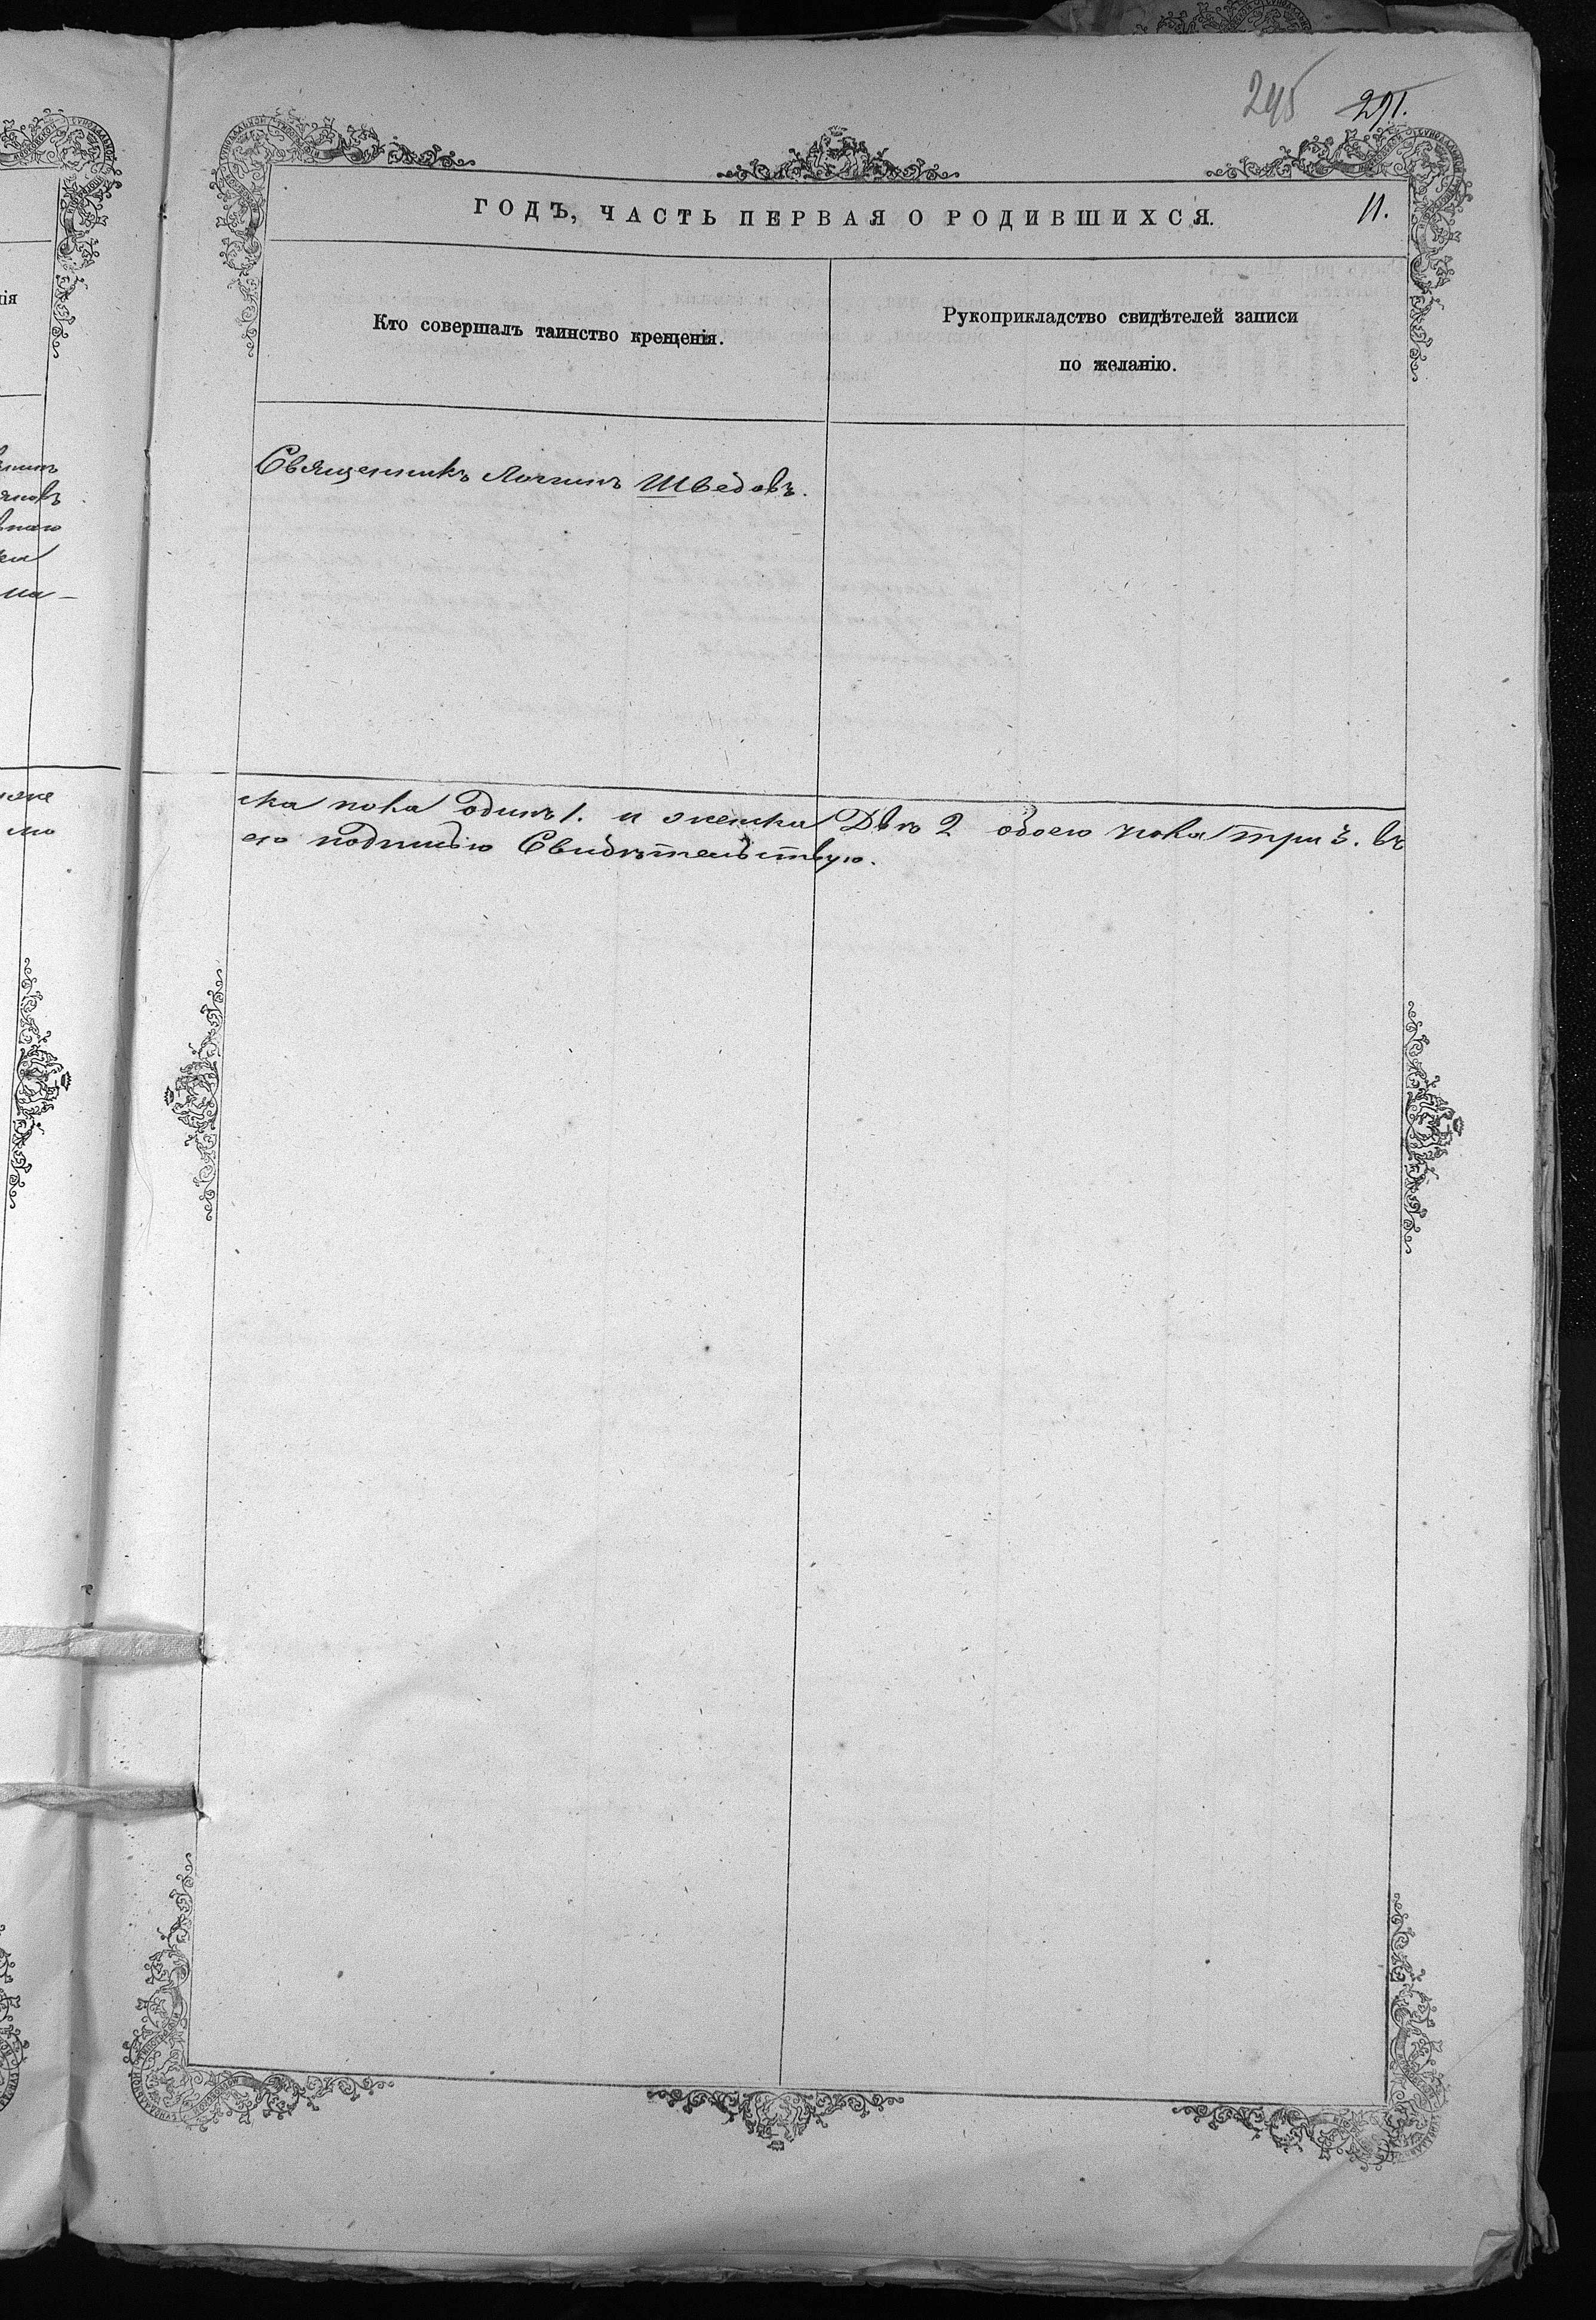 245 291.
ГОДЪ, ЧАСТЬ ПЕРВАЯ О РОДИВШИХСЯ. 11.
Кто совершалъ таинство крещенія.
Рукоприкладство свидѣтелей записи
по желанію.
Священникъ Логгинъ Шведовъ.
ска пола одинъ 1. и женска Двѣ 2 обоего пола три 3. въ
его подписью Свидѣтельствую.